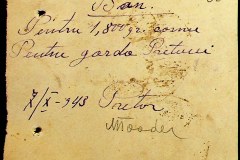 Bon.
Pentru 1,800 gr. carne
Pentru garda Preturei
7/X-943 Pretor